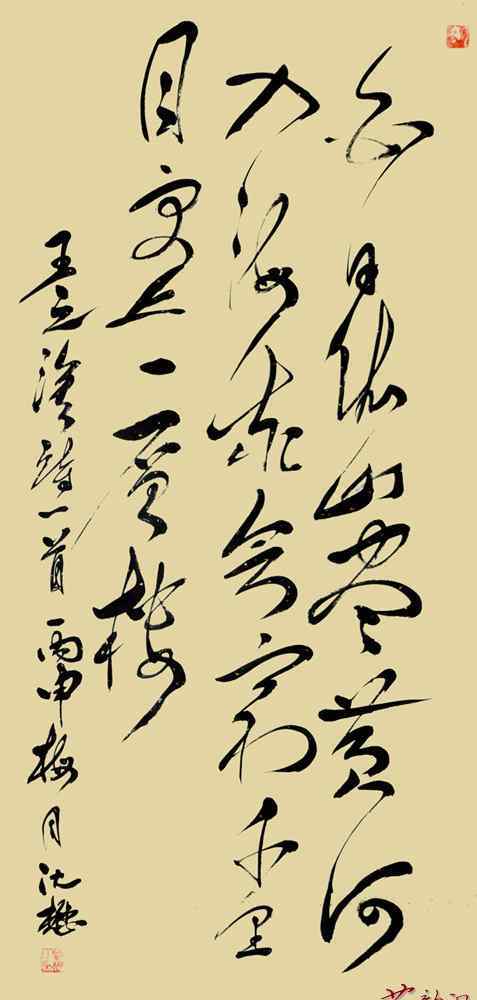 白日依山盡黄河
入海流欲窮千里
目更上一層楼
王之渙詩一首 丙申梅月沈